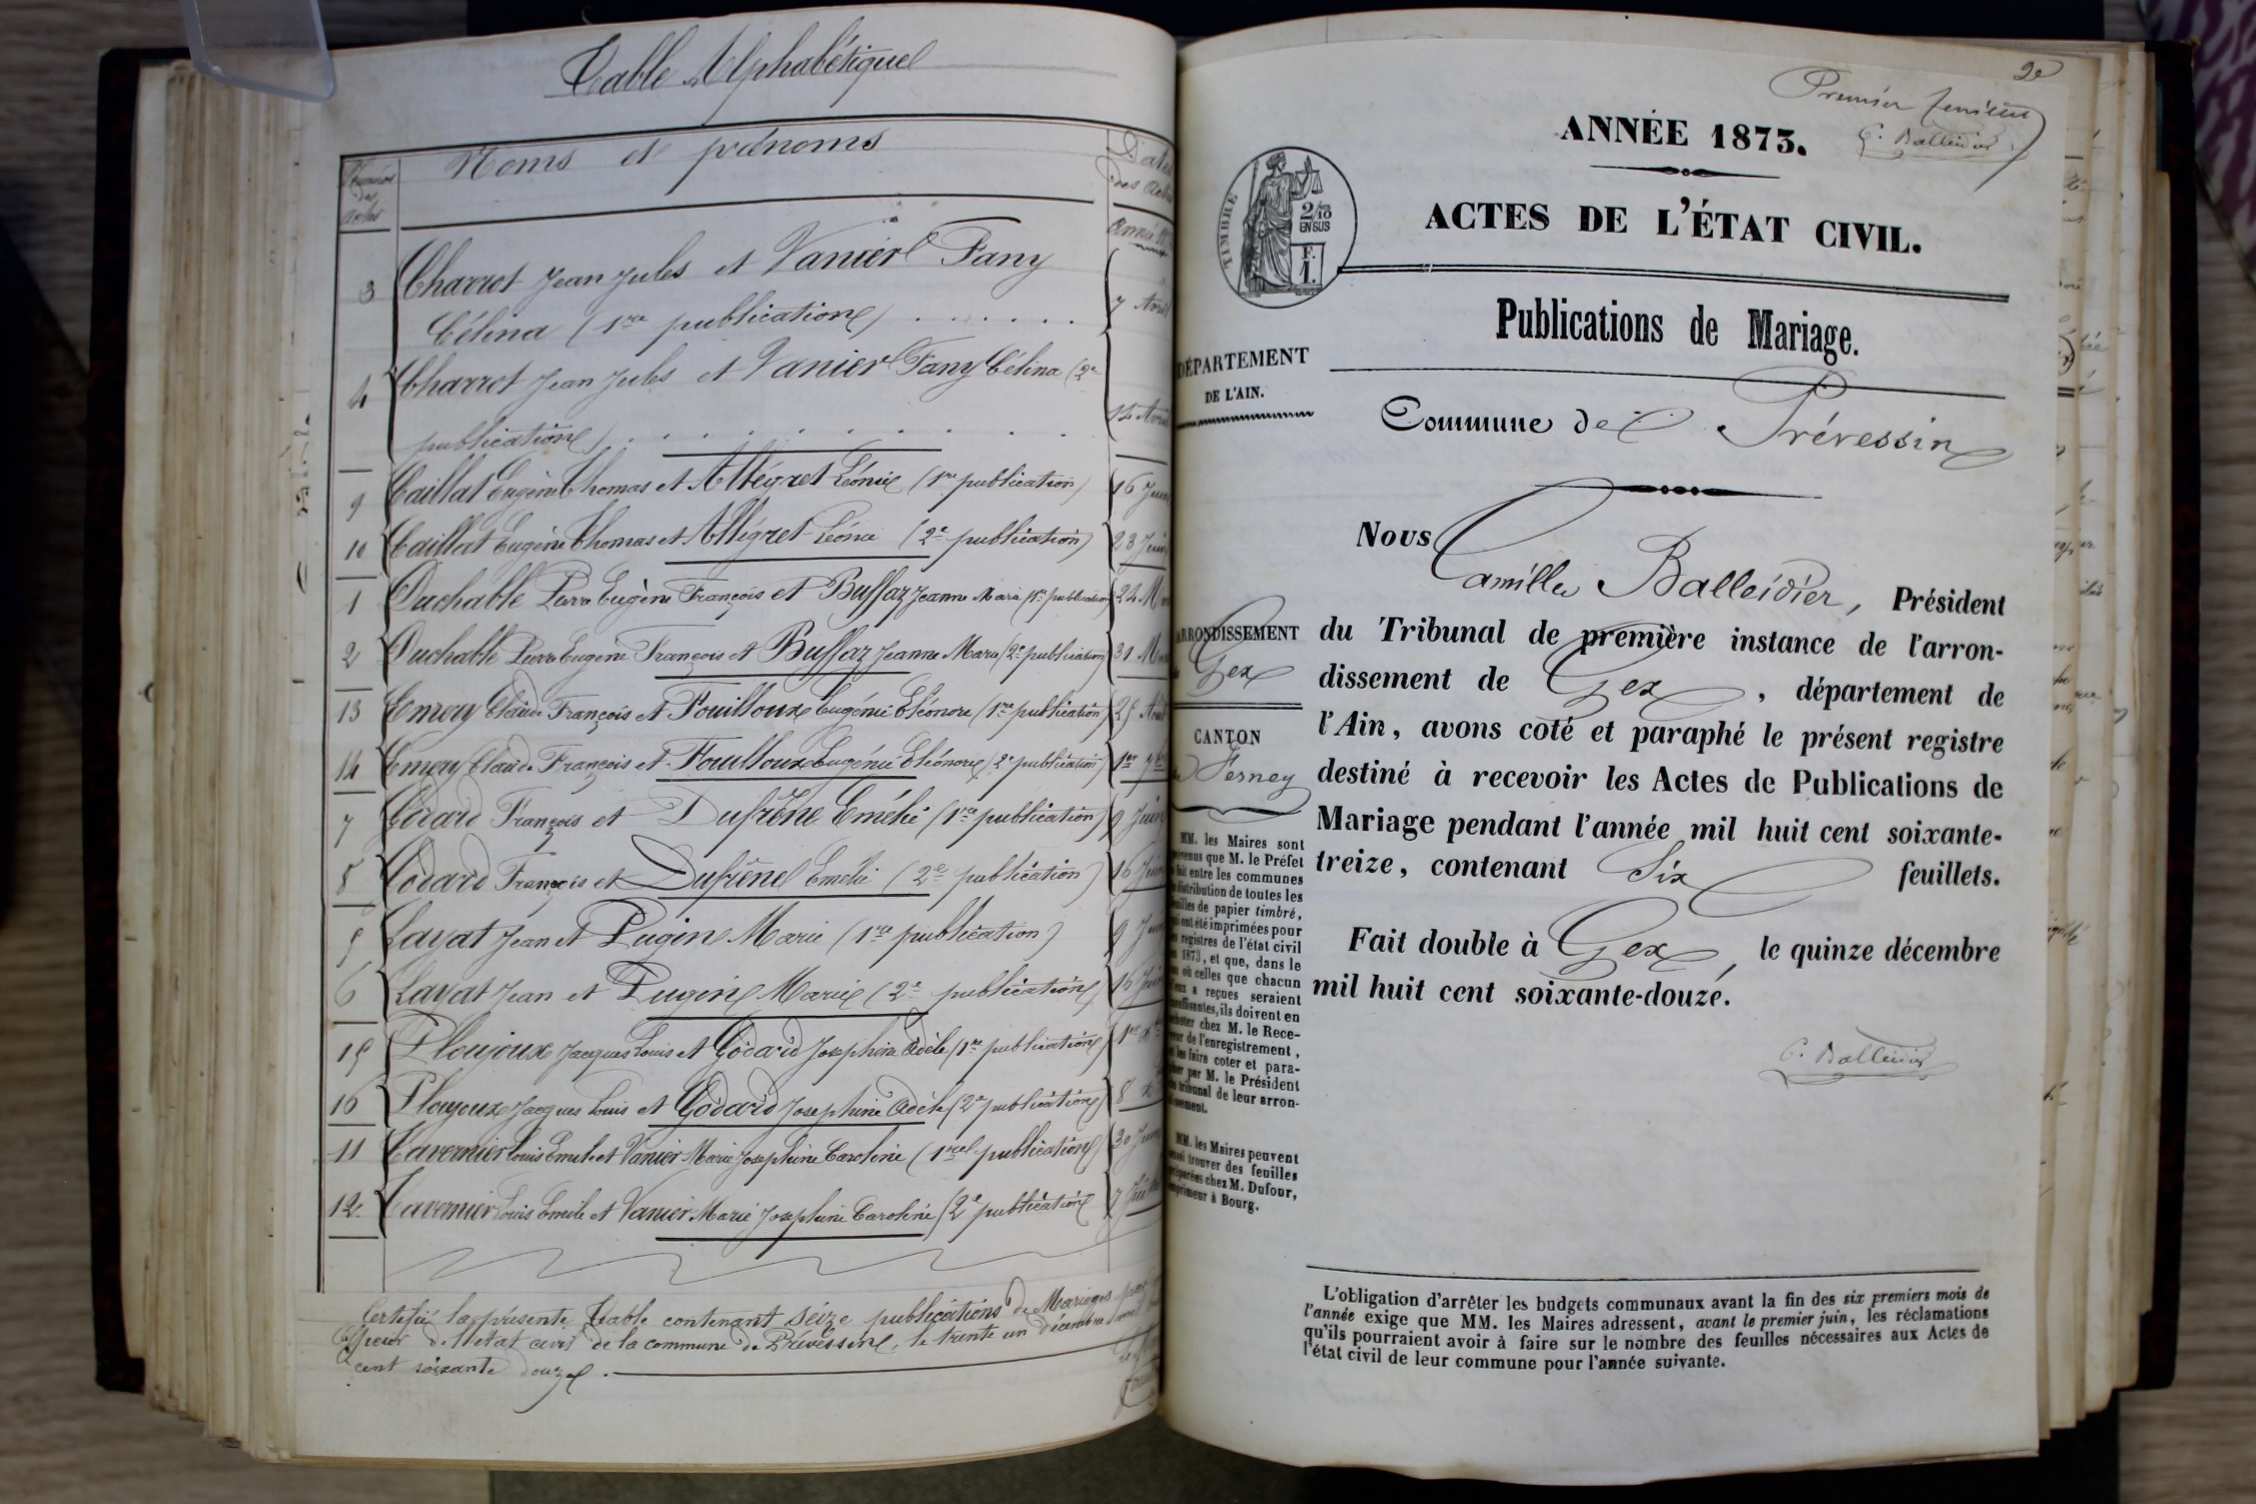 Table Alphabétique
Numéros des actes
Noms et prénoms
Dates des actes
Année
3 Charrot Jean Jules et Vanier Fany
Célina (1re publication) . . . . . . . 7 Avril
4 Charrot Jean Jules et Vanier Fany Célina (2e
publication) . . . . . . . . . . 14 Avril
9 Caillat Eugène Thomas et Allégret Léonie (1re publication) 16 Juin
10 Caillat Eugène Thomas et Allégret Léonie (2e publication) 23 Juin
1 Duchable Pierre Eugène François et Buffaz Jeanne Marie (1re publication) 24
2 Duchable Pierre Eugène François et Buffaz Jeanne Marie (2e publication) 31
13 Emery Claude François et Fouilloux Eugénie Eléonore (1re publication) 25 Août
14 Emery Claude François et Fouilloux Eugénie Eléonore (2e publication) 1er
7 Godard François et Dufrêne Emélie (1re publication) 9 Juin
8 Godard François et Dufrêne Emélie (2e publication) 16 Juin
5 Lavat Jean et Pugin Marie (1re publication) 9
6 Lavat Jean et Pugin Marie (2e publication) 16 Juin
15 Ploujoux Jacques Louis et Godard Josephine Adèle (1re publication) 1er
16 Ploujoux Jacques Louis et Godard Josephine Adèle (2e publication) 8
11 Tavernier Louis Emile et Vanier Marie Josephine Caroline (1re publication) 30 Juin
12 Tavernier Louis Emile et Vanier Marie Josephine Caroline (2e publication) 7
Certifié la présente Table contenant seize publications de Mariages par
officier de l'état civil de la commune de Prévessin, le trente un décembre
cent soixante douze.
2e
Premier
C. Balleidier
ANNÉE 1873.
TIMBRE
2/10
EN SUS
F.
1.
ACTES DE L'ÉTAT CIVIL.
Publications de Mariage.
DÉPARTEMENT
DE L'AIN.
Commune de Prévessin
Nous Camille Balleidier, Président
du Tribunal de première instance de l'arron-
dissement de Gex, département de
l'Ain, avons coté et paraphé le présent registre
destiné à recevoir les Actes de Publications de
Mariage pendant l'année mil huit cent soixante-
treize, contenant Six feuillets.
Fait double à Gex, le quinze décembre
mil huit cent soixante-douze.
C. Balleidier
ARRONDISSEMENT
Gex
CANTON
de Ferney
MM. les Maires sont
prévenus que M. le Préfet
a fait entre les communes
distribution de toutes les
feuilles de papier timbré,
qui ont été imprimées pour
les registres de l'état civil
de 1873, et que, dans le
cas où celles que chacun
d'eux a reçues seraient
insuffisantes, ils doivent en
acheter chez M. le Rece-
veur de l'enregistrement,
et les faire coter et para-
pher par M. le Président
du tribunal de leur arron-
dissement.
MM. les Maires peuvent
aussi trouver des feuilles
préparées chez M. Dufour,
imprimeur à Bourg.
L'obligation d'arrêter les budgets communaux avant la fin des six premiers mois de
l'année exige que MM. les Maires adressent, avant le premier juin, les réclamations
qu'ils pourraient avoir à faire sur le nombre des feuilles nécessaires aux Actes de
l'état civil de leur commune pour l'année suivante.